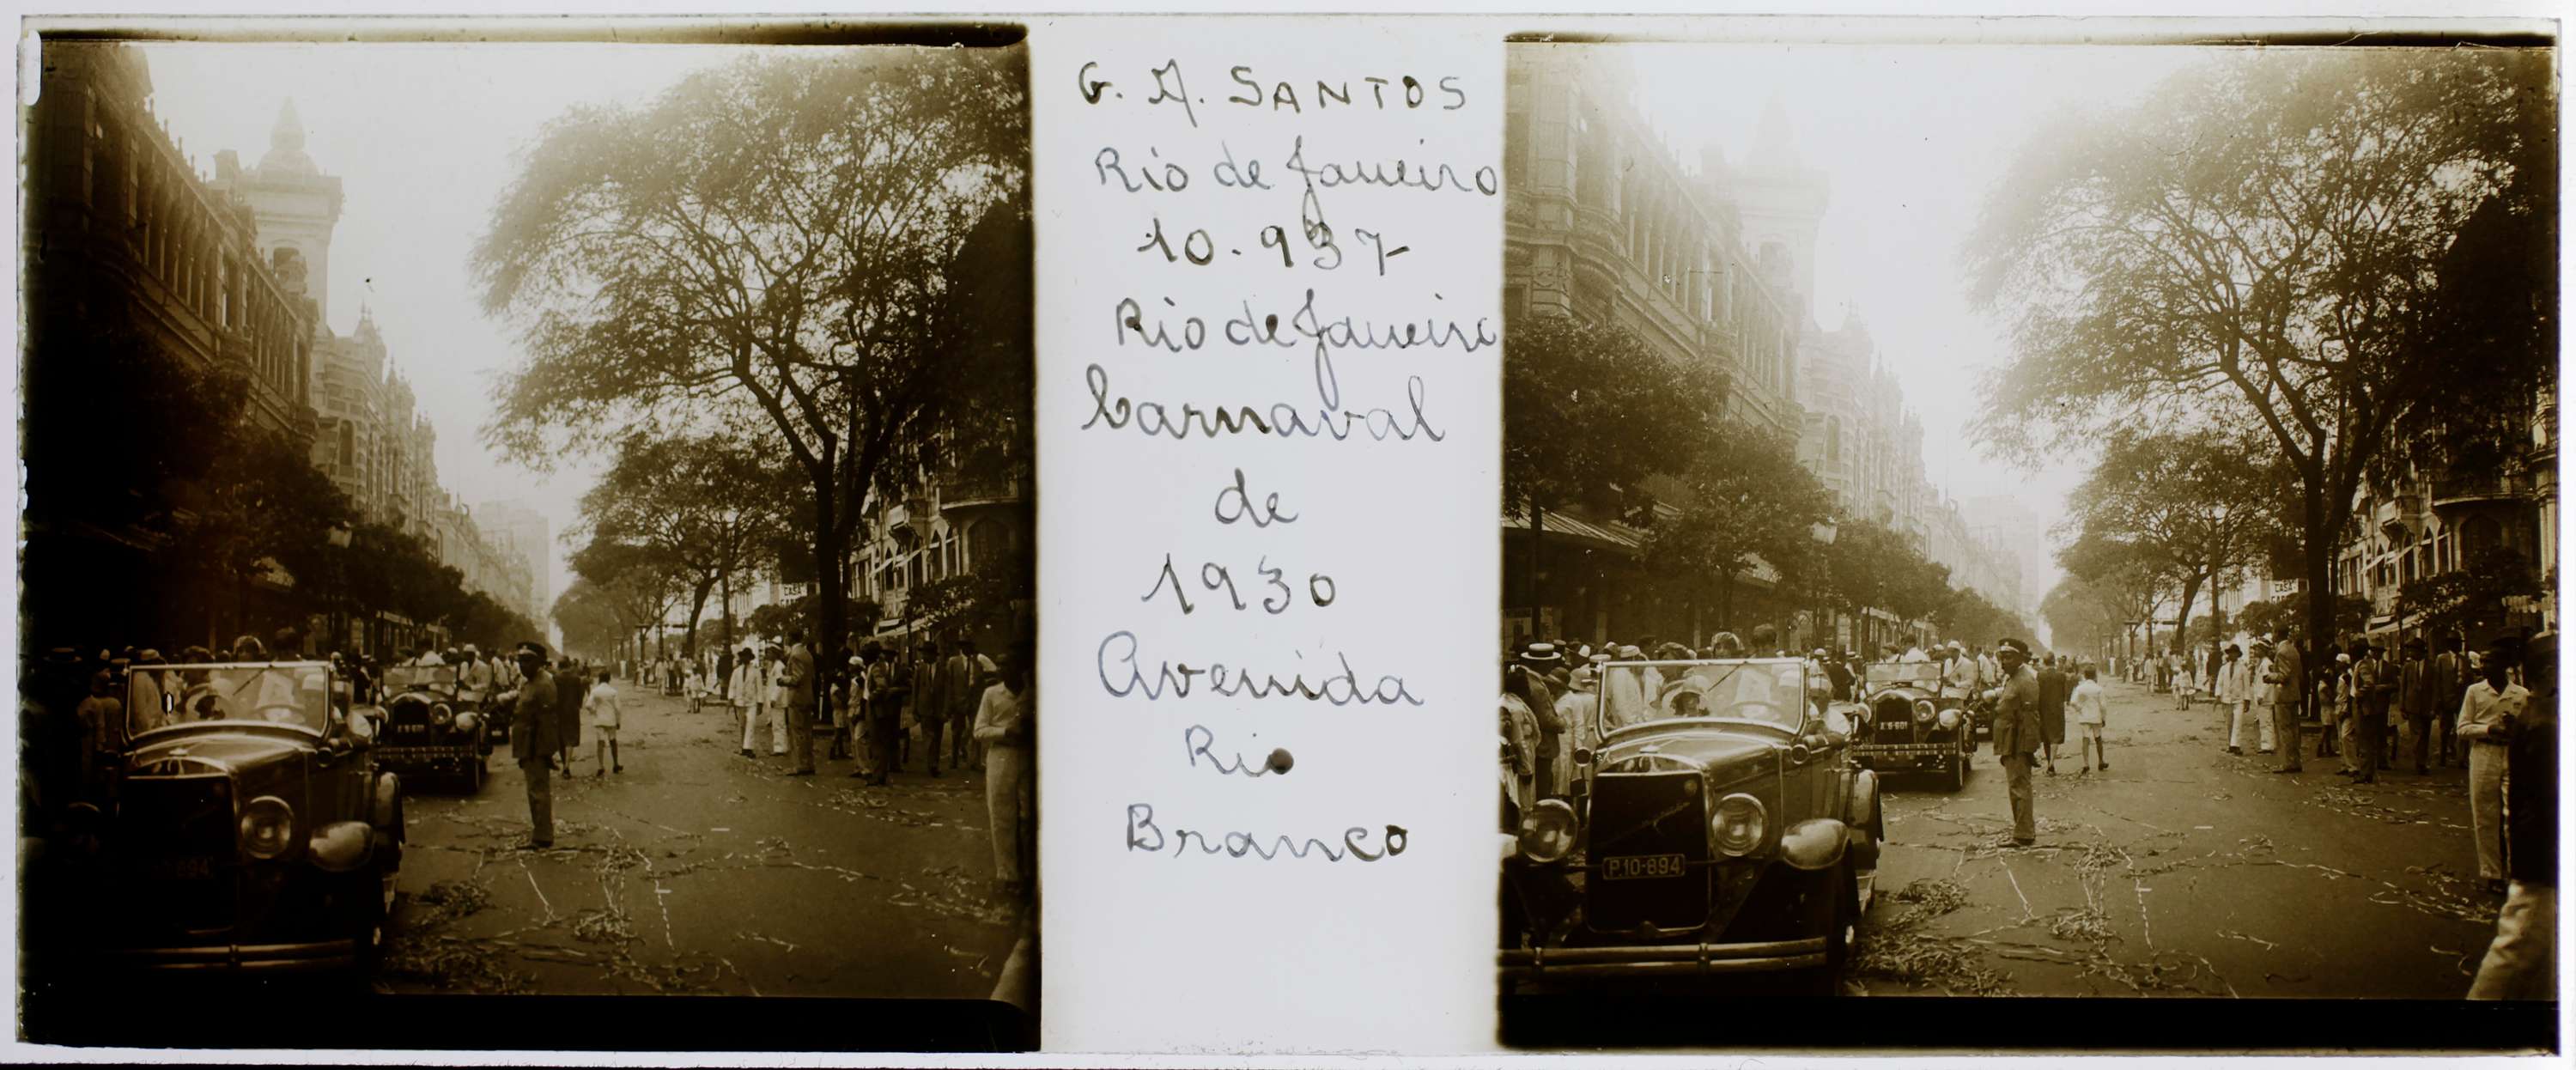 G. A. SANTOS
Rio de Janeiro
10.937
Rio de Janeiro
Carnaval
de
1930
Avenida
Rio
Branco
CASA
P.10-894